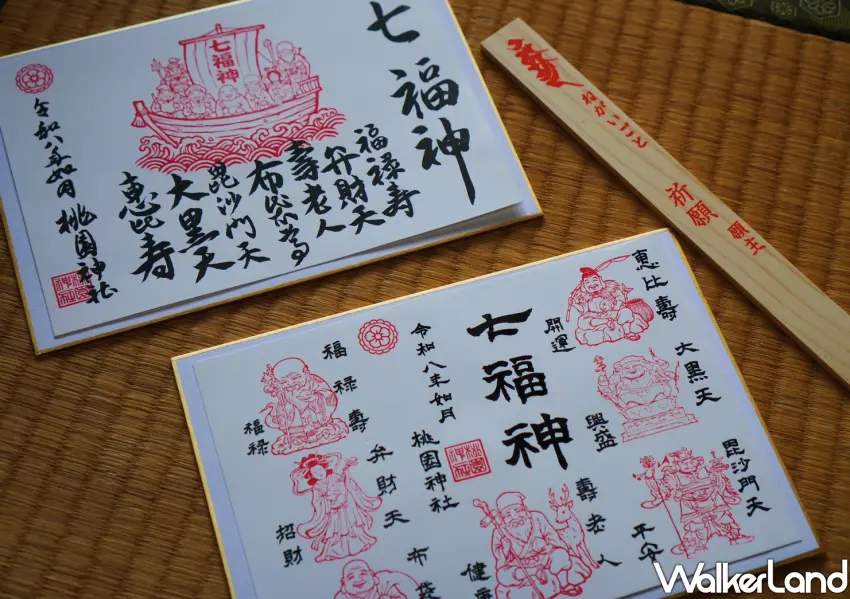 七福神
七福神
福禄寿
弁財天
寿老人
布袋尊
毘沙門天
大黒天
恵比寿
令和八年如月
桃園神社
ねがいごと
祈願
願主
恵比壽
開運
大黒天
興盛
毘沙門天
平安
七福神
令和八年如月
桃園神社
桃園神社
壽老人
健
福禄壽
福禄
弁財天
招財
布袋
WalkerLand